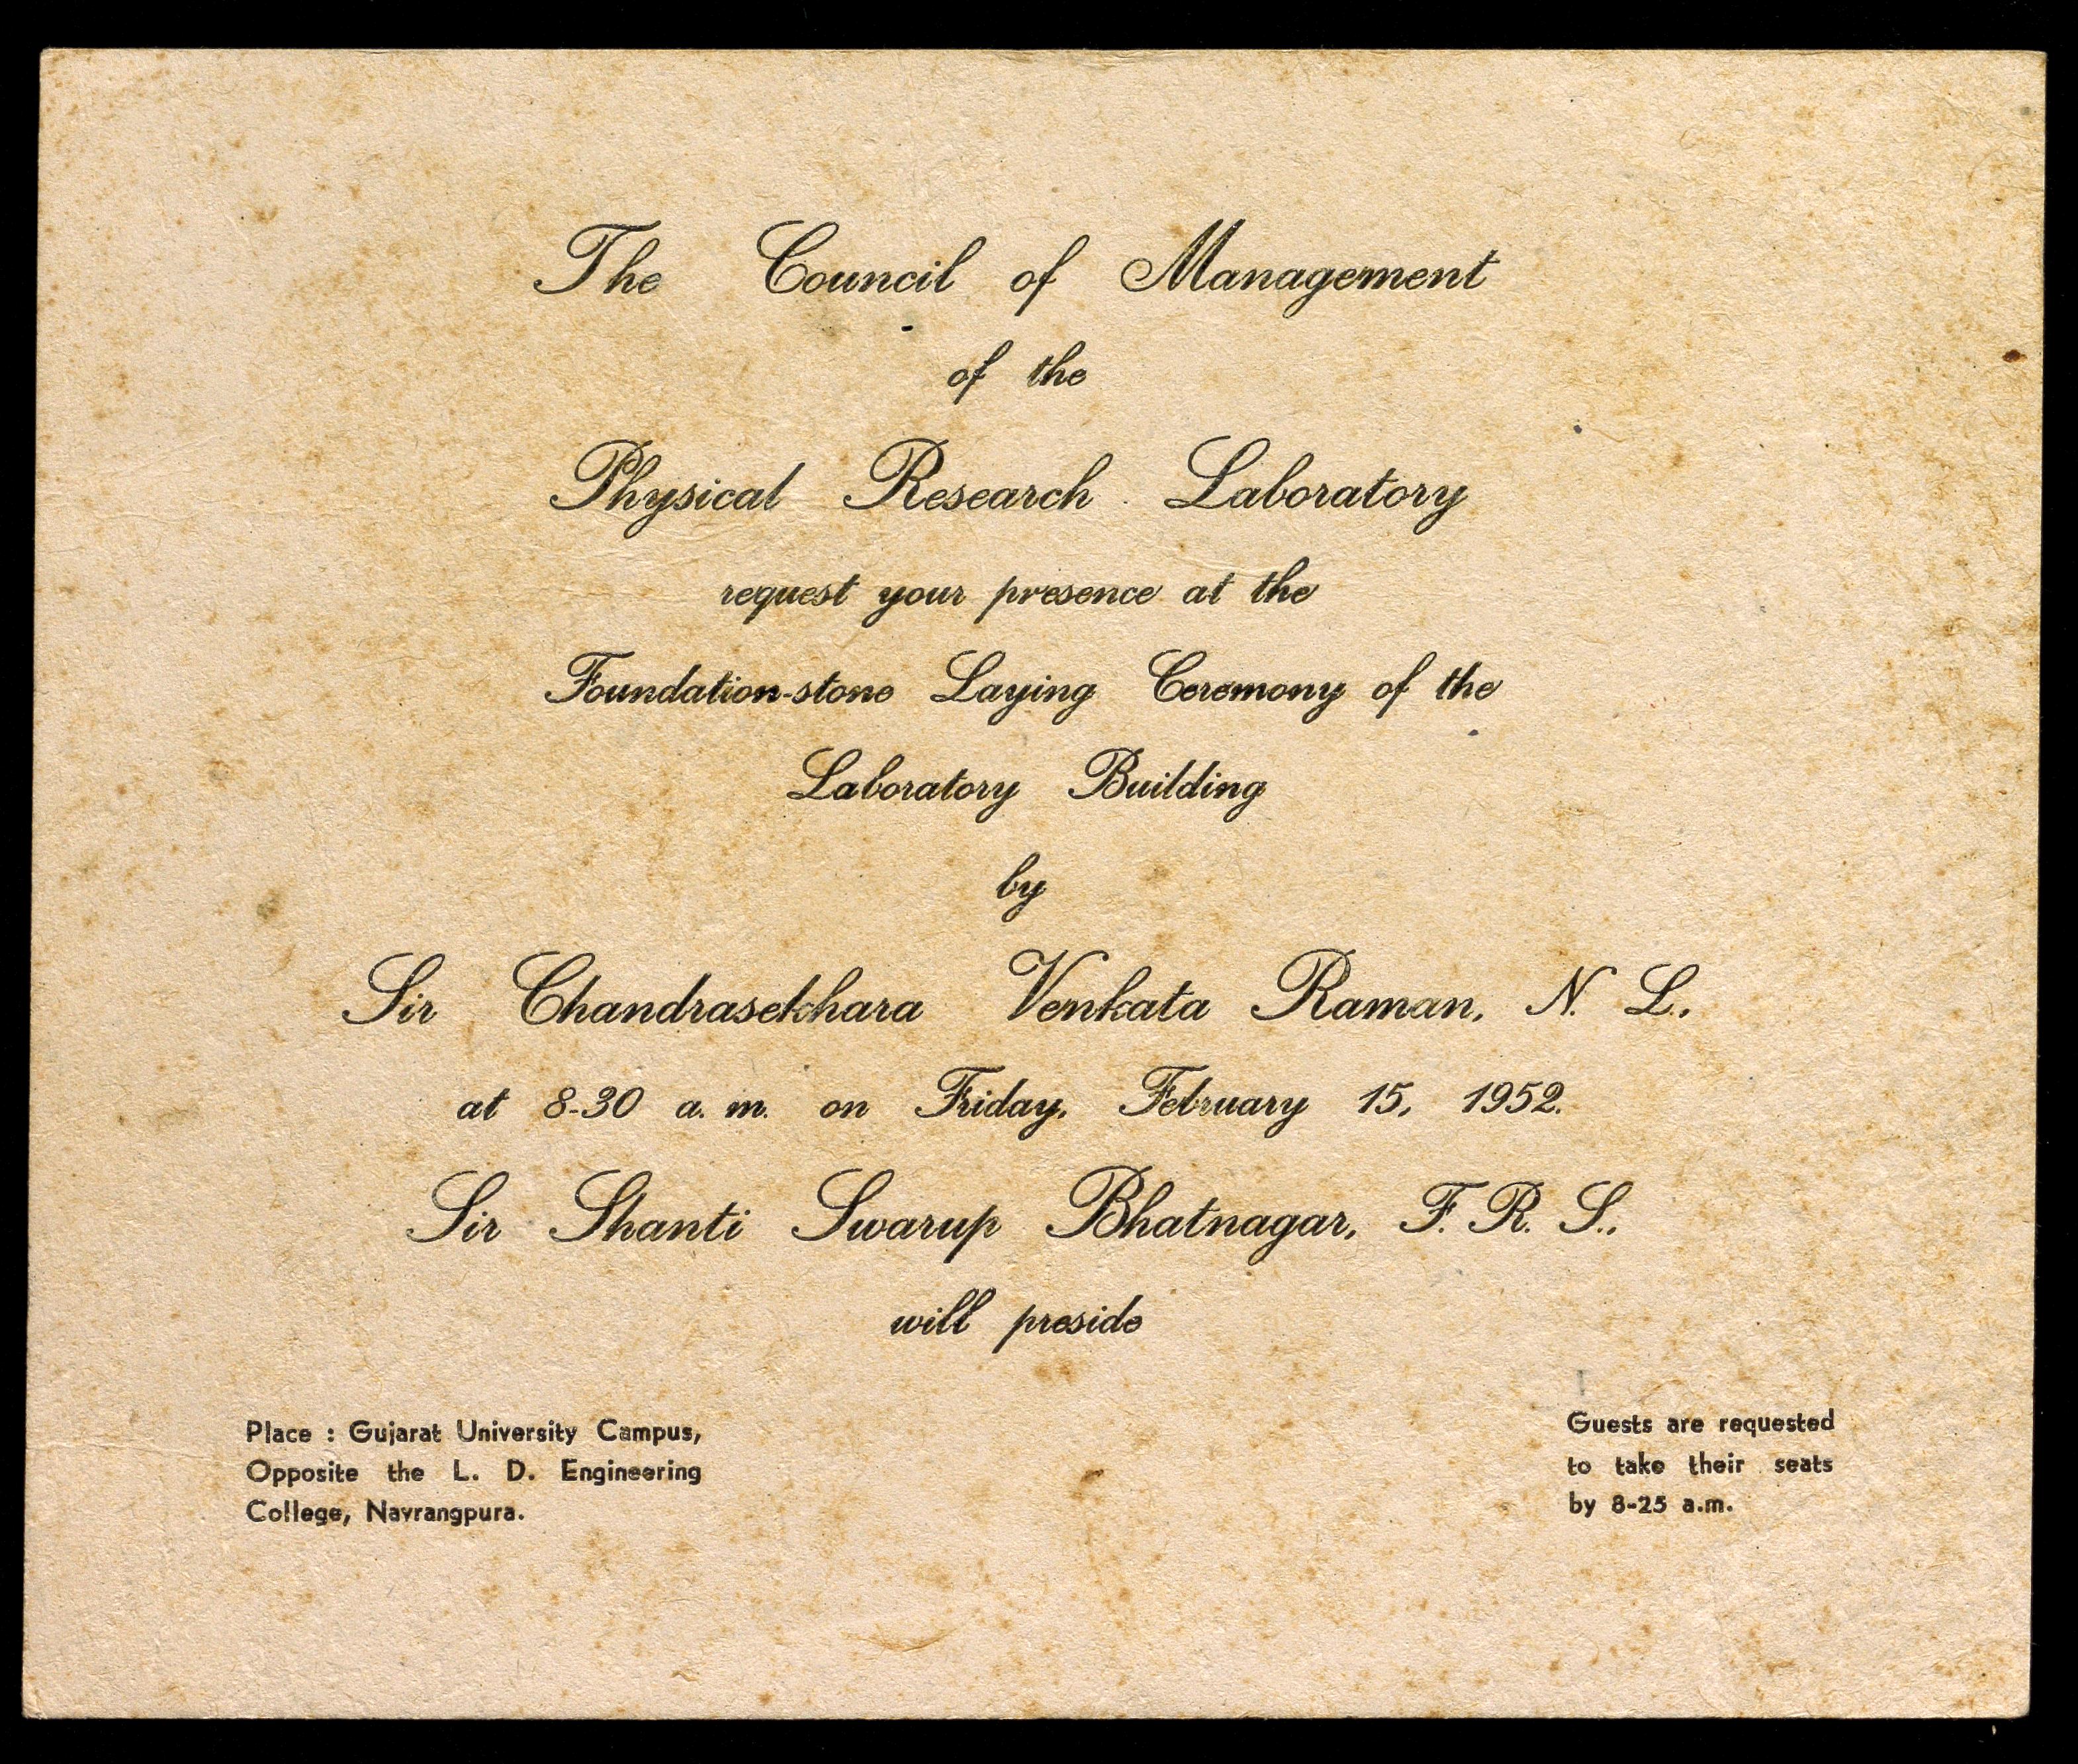 The Council of Management
of the
Physical Research Laboratory
request your presence at the
Foundation-stone Laying Ceremony of the
Laboratory Building
by
Sir Chandrasekhara Venkata Raman, N. L.,
at 8-30 a. m. on Friday, February 15, 1952.
Sir Shanti Swarup Bhatnagar, F. R. S.,
will preside
Place : Gujarat University Campus,
Opposite the L. D. Engineering
College, Navrangpura.
Guests are requested
to take their seats
by 8-25 a.m.